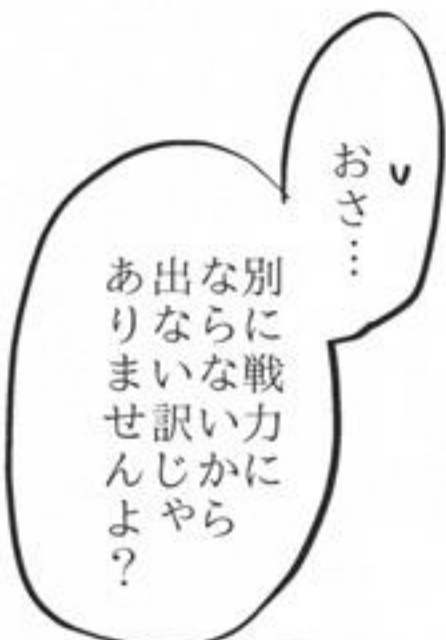 おさ…
別に戦力に
ならないから
出ない訳じゃ
ありませんよ？